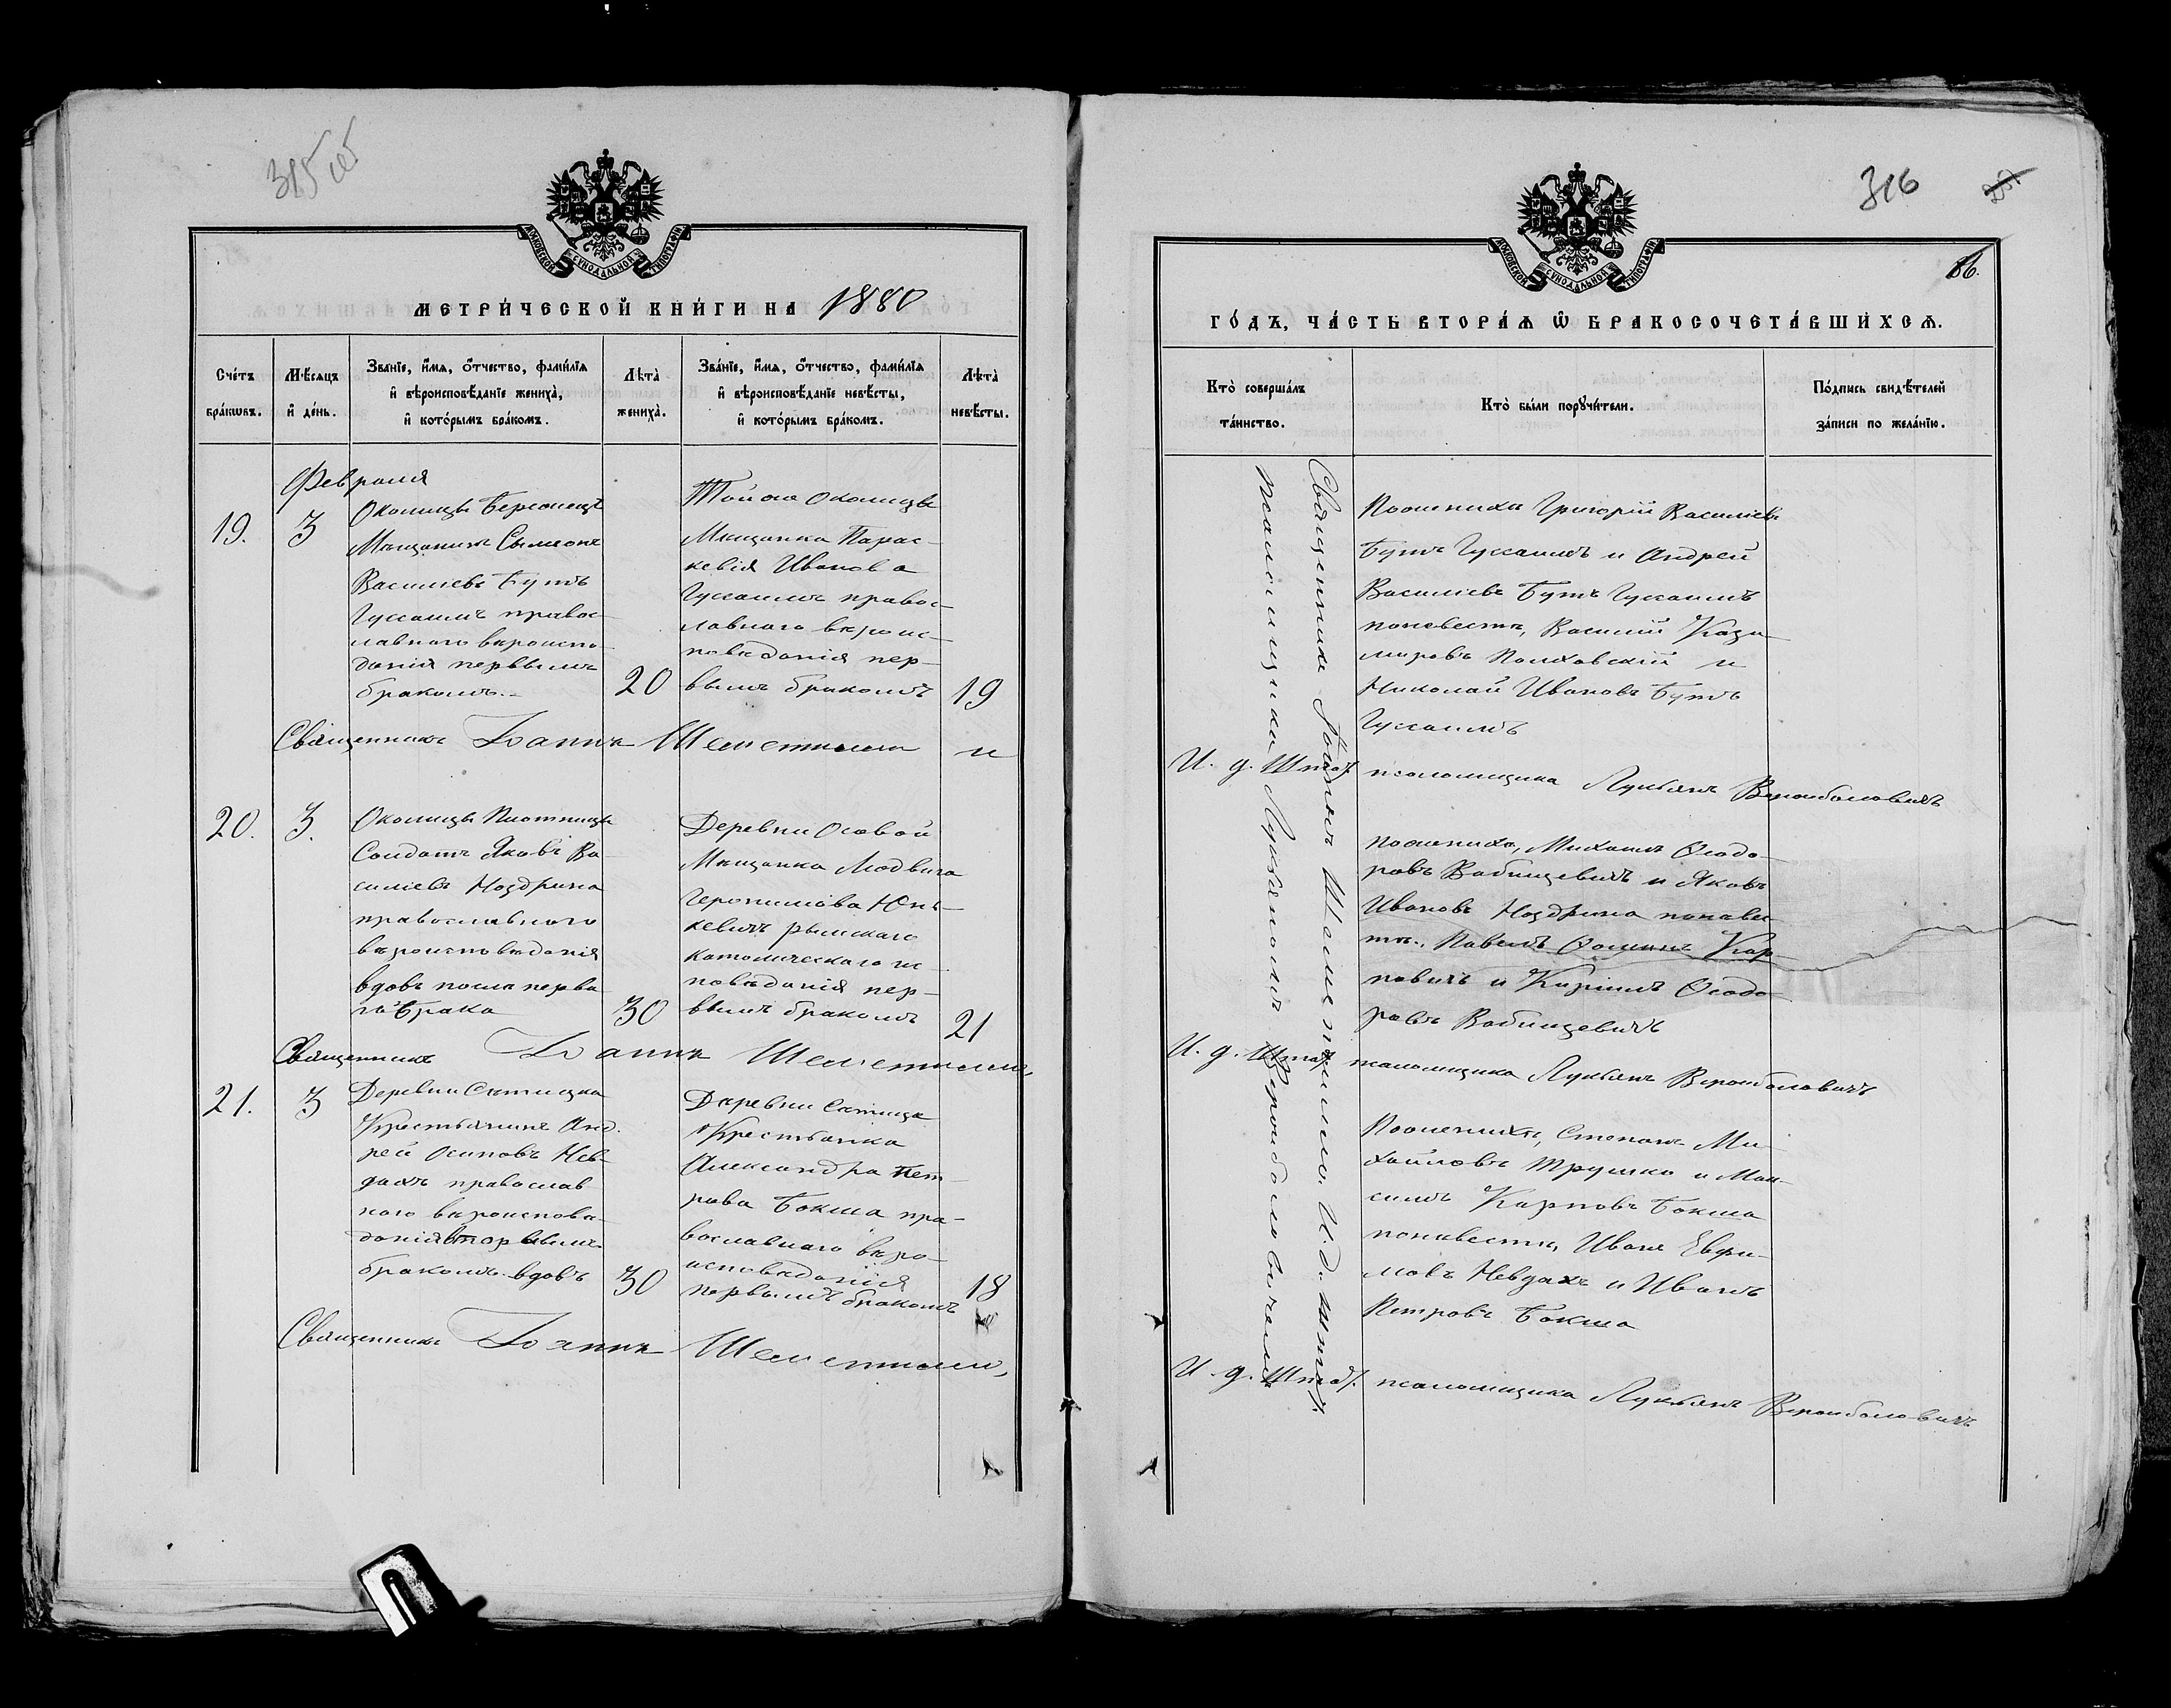 315 об
МОСКОВСКОЙ СѴНОДАЛЬНОЙ ТИПОГРАФІИ
МЕТРИ́ЧЕСКОЙ КНИ́ГИ НА 1880
Сче́тъ бра́кωвъ.
Мѣ́сяцъ и҆ де́нь.
Зва́нїе, и҆́мѧ, ѻ҆́тчество, фами́лїѧ
и҆ вѣроисповѣ́данїе жениха̀,
и҆ кото́рымъ бра́комъ.
Лѣта̀ жениха̀.
Зва́нїе, и҆́мѧ, ѻ҆́тчество, фами́лїѧ
и҆ вѣроисповѣ́данїе невѣ́сты,
и҆ кото́рымъ бра́комъ.
Лѣта̀ невѣ́сты.
Февраля
19.
3
Околицы
Мѣщанинъ Сымеонъ
Васильевъ Бутъ
Гуссаимъ правос-
лавнаго вѣроиспо-
данія первымъ
бракомъ.
20
Той же околицы
Мѣщанка Парас-
кевія Иванова
Гуссаимъ правос-
лавнаго вѣроис-
повѣданія пер-
вымъ бракомъ
19
Священникъ Іоаннъ Шеметилло и
20.
3.
Околицы Плотницы
Солдатъ Яковъ Ва-
силіевъ Ноздрина
православнаго
вѣроисповѣданія
вдовъ послѣ перва
го брака
30
Деревни Осовой
Мѣщанка Людвига
Геронимова Юнь-
кевичъ рымскаго
католическаго ис-
повѣданія пер-
вымъ бракомъ
21
Священникъ Іоаннъ Шеметилло,
21.
3
Деревни Сятицка
Крестьянинъ Анд-
рей Осиповъ Нев-
дахъ православ
наго вѣроисповѣ-
данія вторымъ
бракомъ вдовъ
30
Деревни Сятицк
Крестьянка
Александра Пет-
рова Бокша пра-
вославнаго вѣро-
исповѣданія
первымъ бракомъ
18
Священникъ Іоаннъ Шеметилло,
316
86.
МОСКОВСКОЙ СѴНОДАЛЬНОЙ ТИПОГРАФІИ
ГО́ДЪ, ЧА́СТЬ ВТОРА́Ѧ Ѽ БРАКОСОЧЕТА́ВШИХСѦ.
Кто̀ соверша́лъ та́инство.
Кто̀ бы́ли порꙋчи́тели.
По́дпись свидѣ́телей за́писи по жела́нїю.
Священникъ Іоаннъ Шеметилло. И. д. штат.
псаломщика Лукьяномъ Верамболовичемъ
Поженихѣ Григорій Василіевъ
Бутъ Гуссаимъ и Андрей
Василіевъ Бутъ Гуссаимъ
поневестѣ, Василій Кази-
мировъ Полховскій и
Николай Ивановъ Бутъ
Гуссаимъ
И. д. Штат. псаломщика Лукьянъ Верамболовичъ
Поженихѣ, Михаилъ Ѳеодо-
ровъ Вабищевичъ и Яковъ
Ивановъ Ноздрина поневес
тѣ, Павелъ Ѳоминъ Кар-
повичъ и Кирилъ Ѳеодо-
ровъ Вабищевичъ
И. д. Штат. псаломщика Лукьянъ Верамболовичъ
Поженихѣ, Степанъ Ми-
хайловъ Трушко и Мак-
симъ Карповъ Бокша
поневестѣ, Иванъ Евфи-
мовъ Невдахъ и Иванъ
Петровъ Бокша
И. д. Штат. псаломщика Лукьянъ Верамболовичъ